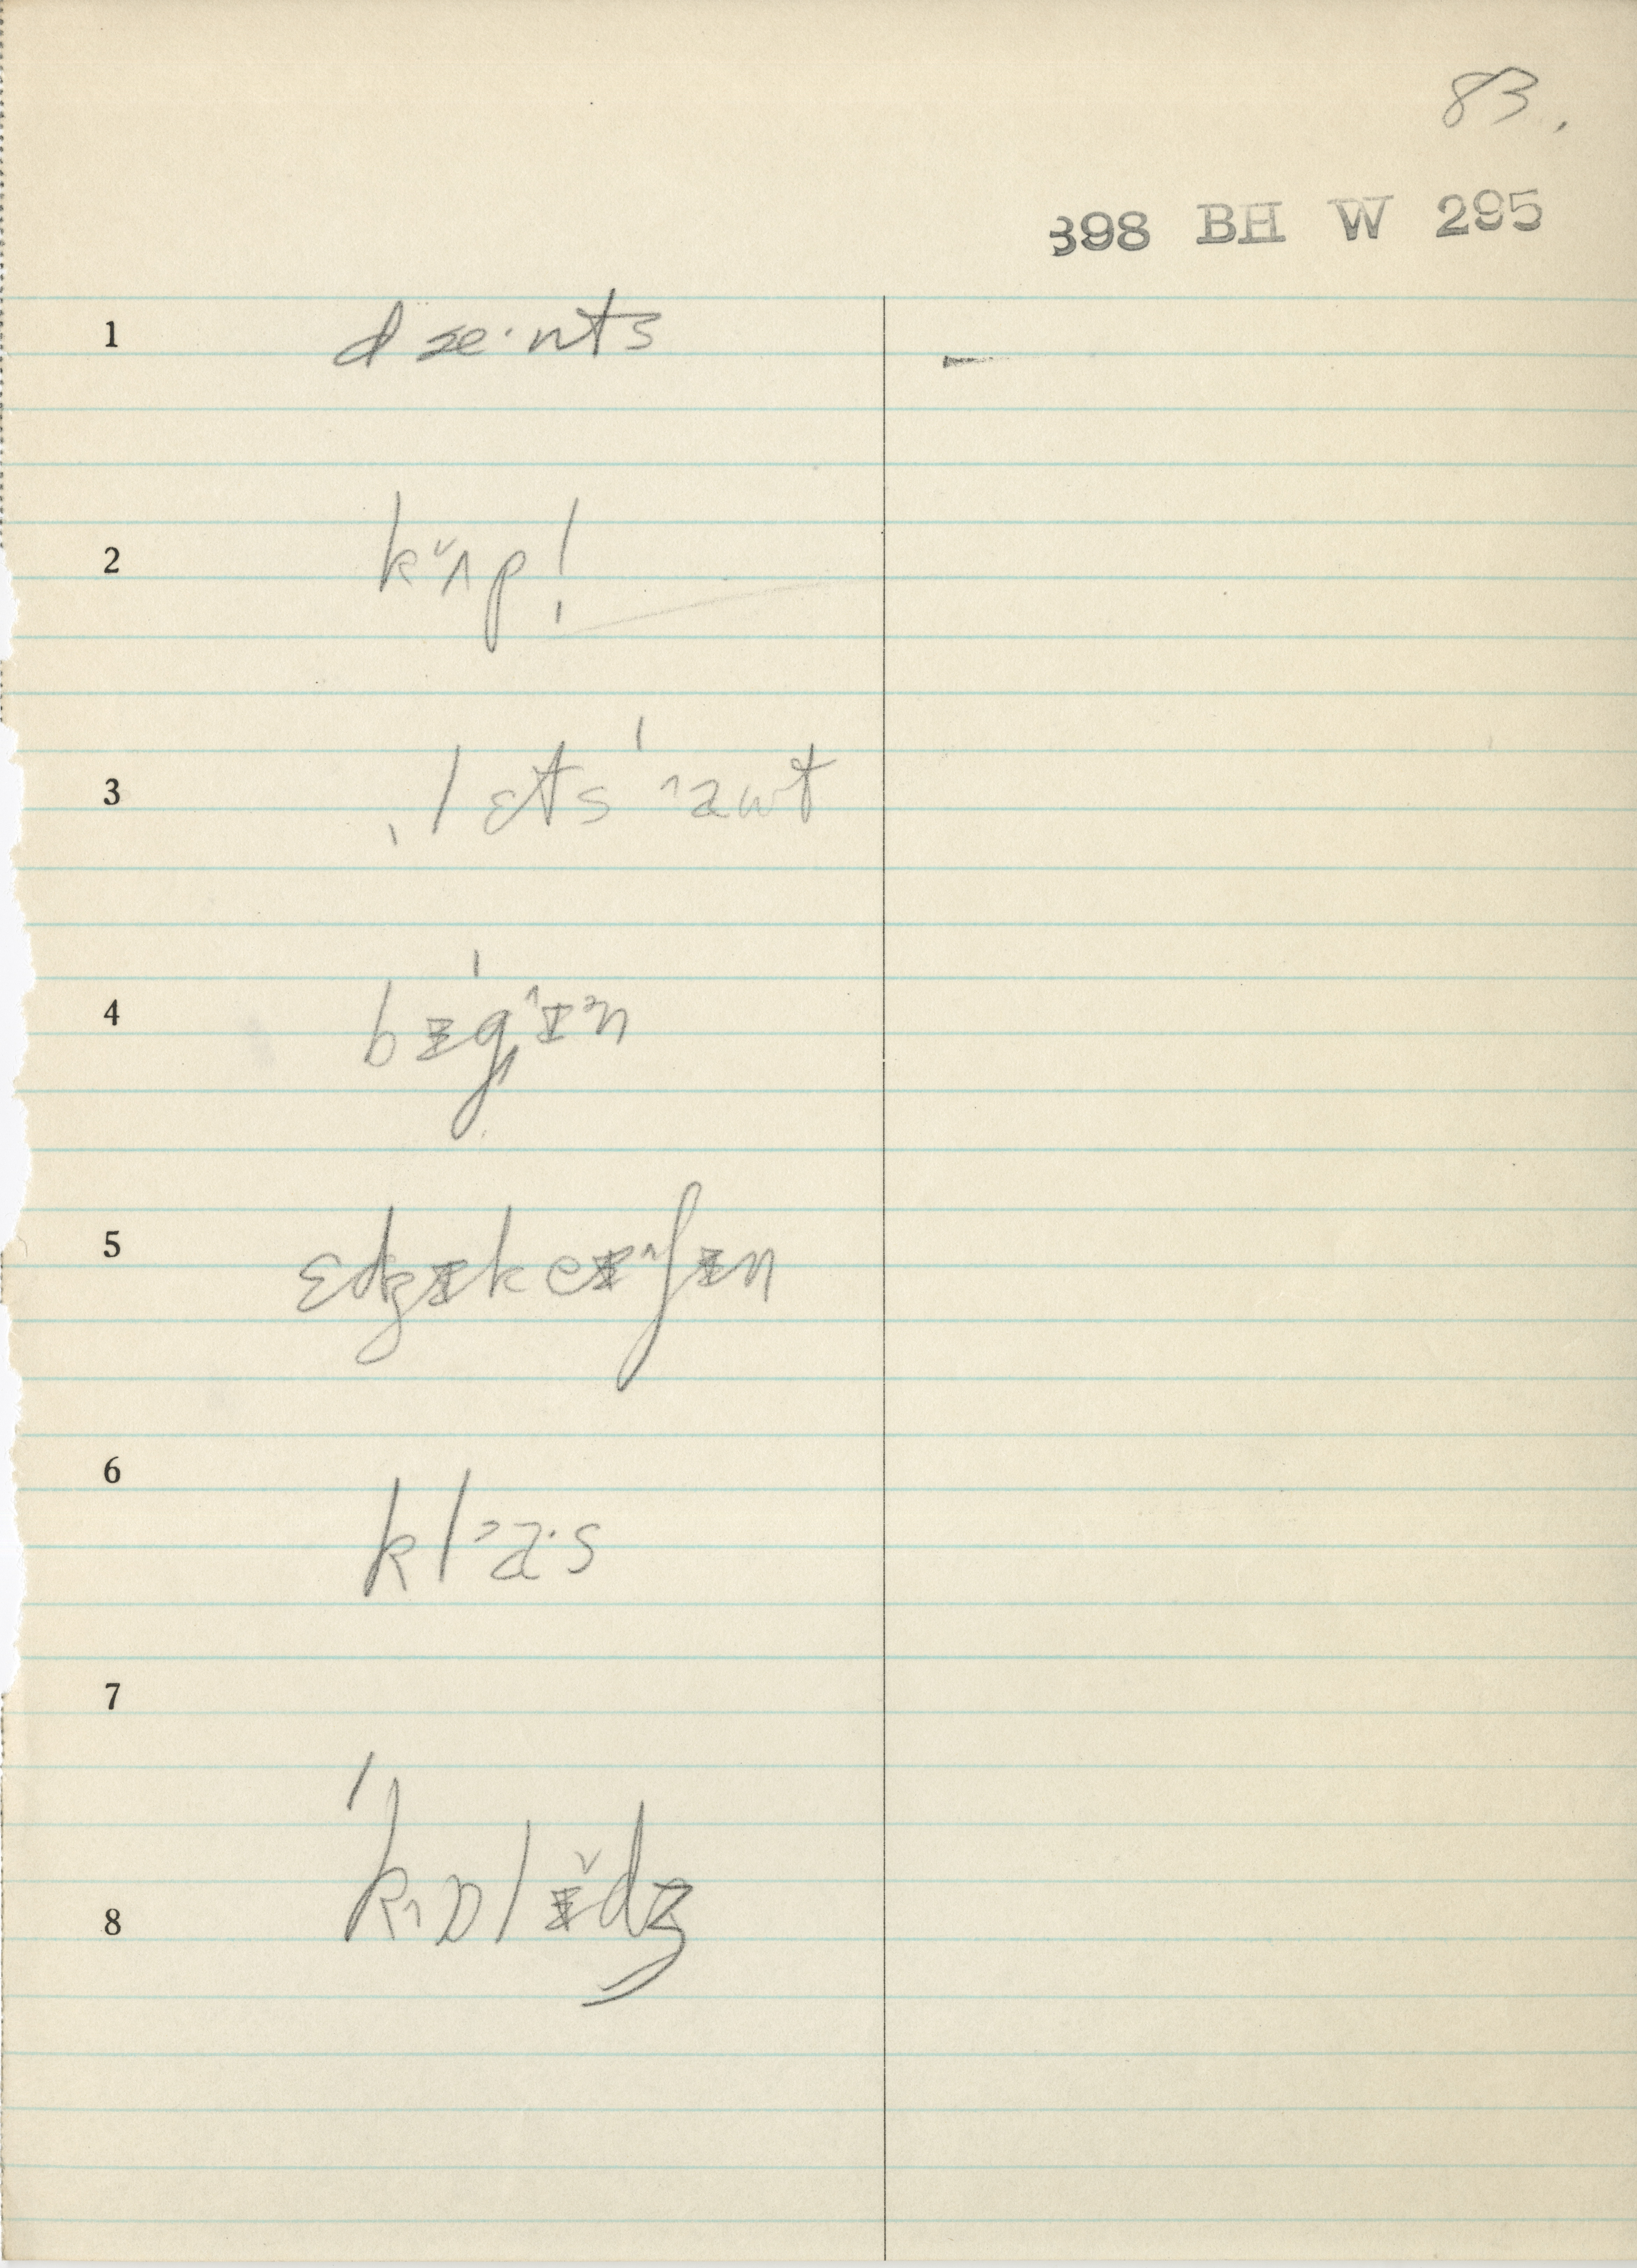 83.
398 BH W 295
1 dæ·nts
2 k˅ʌp!
3 ˌlɛts ˈ˄aʊt
4 bɪˈg˄ɪᵊn
5 ɛdʒɪkeɪ˄ʃɪn
6 kl˃a·s
7
8 ˈk˄ɒlɪ˅dʒ